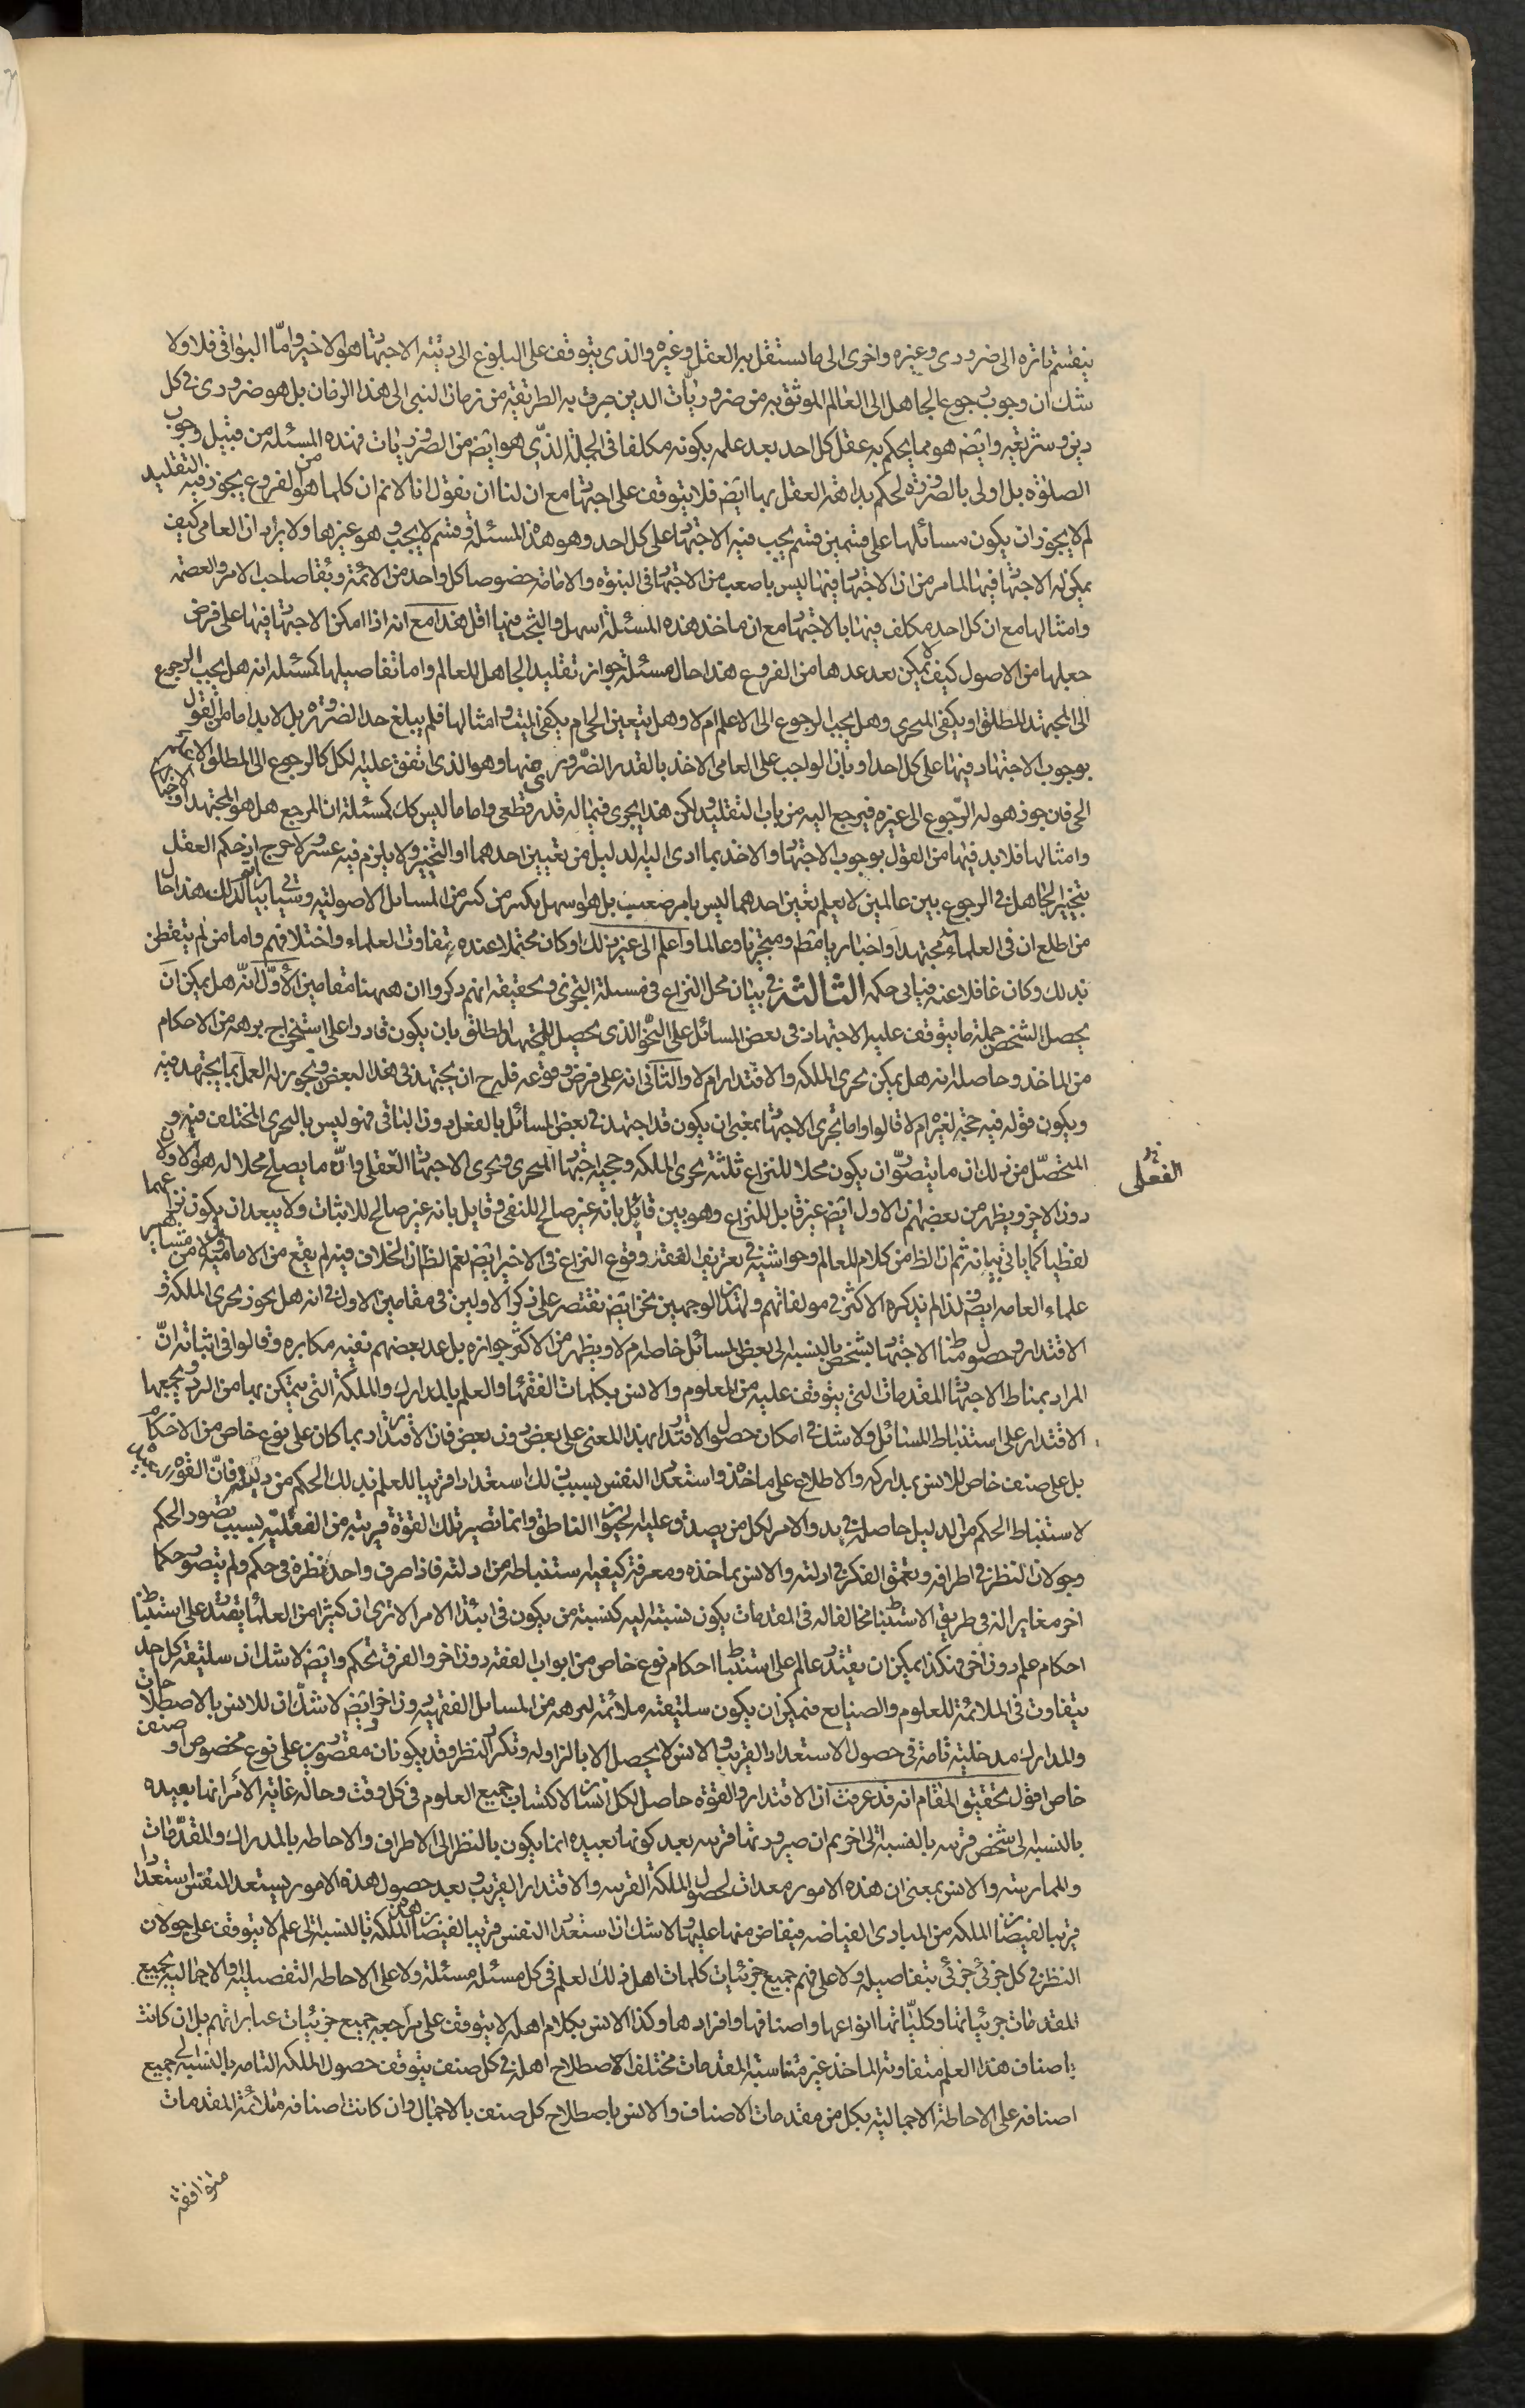 ينقسم تارة الى ضرورى وغيره واخرى الى ما يستقل به العقل وغيره والذى يتوقف على البلوغ الى رتبة الاجتهاد هو الاخير واما البواقى فلا ولا
شك ان وجوب رجوع الجاهل الى العالم الموثق به من ضروريات الدين جرت به الطريقة من زمان النبى الى هذا الزمان بل هو ضرورى فى كل
دين وشريعة وايض هو مما يحكم به عقل كل احد بعد علمه بكونه مكلفا فى الجملة الذى هو ايض من الضروريات فهذه المسئلة من قبيل وجوب
الصلوة بل اولى بالضرورة لحكم بداهة العقل بها ايض فلا يتوقف على اجتهاد مع ان لنا ان نقول انا لا نم ان كلما هو من الفروع يجوز فيه التقليد
لم لا يجوز ان يكون مسائلها على قسمين قسم يجب فيه الاجتهاد على كل احد وهو هذه المسئلة وقسم لا يجب وهو غيرها ولا يراد ان العامى كيف
يمكن له الاجتهاد فيها لما مر من ان الاجتهاد فيها ليس باصعب من الاجتهاد فى النبوة والامامة خصوصا كل واحد من الائمة وبقا صاحب الامر والعصمة
وامثالها مع ان كل احد مكلف فيها بالاجتهاد مع ان ماخذ هذه المسئلة اسهل والبحث فيها اقل هذا مع انه اذا امكن الاجتهاد فيها على فرض
جعلها من الاصول كيف لا يمكن بعد عدها من الفروع هذا حال مسئلة جواز تقليد الجاهل للعالم واما تفاصيلها كمسئلة انه هل يجب الرجوع
الى المجتهد المطلق او يكفى المتجزى وهل يجب الرجوع الى الاعلم ام لا وهل يتعين الحى ام يكفى الميت وامثالها فلم يبلغ حد الضرورة بل لا بد اما من القول
بوجوب الاجتهاد فيها على كل احد او بان الواجب على العامى الاخذ بالقدر الضرورى منها وهو الذى اتفق عليه الكل كالرجوع الى المطلق الاعلم
الحى فان جوز هو له الرجوع الى غيره فيرجع اليه من باب التقليد ولكن هذا يجرى فيما له قدر قطعى واما ما ليس كك كمسئلة ان المرجع هل هو المجتهد او الاخبارى
وامثالها فلا بد فيها من القول بوجوب الاجتهاد والاخذ بما ادى اليه الدليل من تعيين احدهما او التخيير ولا يلزم فيه عسر ولا حرج ان حكم العقل
بتخيير الجاهل فى الرجوع بين عالمين لا يعلم تعين احدهما ليس بامر صعب بل هو اسهل بكثير من كثير من المسايل الاصولية وسياتى بيان لذلك هذا حال
من اطلع ان فى العلماء مجتهدا واخباريا ومط ومتجزيا وعالما واعلم الى غير ذلك او كان محتملا عنده تفاوت العلماء واختلافهم واما من لم يتفطن
بذلك وكان غافلا عنه فياتى حكمه الثالثة فى بيان محل النزاع فى مسئلة التجزى وتحقيقه انهم ذكروا ان ههنا مقامين الاول انه هل يمكن ان
يحصل لشخص جملة ما يتوقف عليه الاجتهاد فى بعض المسائل على النحو الذى يحصل للمجتهد المطلق بان يكون قادرا على استخراج برهة من الاحكام
من الماخذ وحاصله انه هل يمكن تجزى الملكة والاقتدار ام لا والثانى انه على فرض وقوعه فله ح ان يجتهد فى هذا البعض ويجوز له العمل بما يجتهد فيه
ويكون قوله فيه حجة لغيره ام لا قالوا واما تجزى الاجتهاد بمعنى ان يكون قد اجتهد فى بعض المسائل بالفعل دون الباقى فهو ليس بالتجزى المختلف فيه و
المتحصل من ذلك ان ما يتصور ان يكون محلا للنزاع ثلثة تجزى الملكة وحجية اجتهاد المتجزى وتجزى الاجتهاد الفعلى وان ما يصلح محلا له هو الاولان
الفعلى
دون الاخير ويظهر من بعضهم ان الاول ايض غير قابل للنزاع وهو بين قائل بانه غير صالح للنفى وقايل بانه غير صالح للاثبات ولا يبعد ان يكون نزاعهما
لفظيا كما ياتى بيانه ثم ان الظا من كلام المعالم وحواشيه فى تعريف الفقه وقوع النزاع فى الاخير ايض نعم الظ ان الخلاف فيه لم يقع من الامامية وقول من مشاهير
علماء العامه ايض ولذا لم يذكره الاكثر فى مولفاتهم ولهذين الوجهين نحن ايض نقتصر على ذكر الاولين فى مقامين الاول فى انه هل يجوز تجزى الملكة و
الاقتدار وحصول مناط الاجتهاد لشخص بالنسبة الى بعض المسائل خاصة ام لا ويظهر من الاكثر جوازه بل عد بعضهم نفيه مكابرة وقالوا فى اثباته ان
المراد بمناط الاجتهاد المقدمات التى يتوقف عليه من المعلوم والانس بكلمات الفقهاء والعلم بالمدارك والملكة التى يتمكن بها من الرد ويجمعها
الاقتدار على استنباط المسائل ولا شك فى امكان حصول الاقتدار بهذا المعنى على بعض دون بعض فان الاقتدار ربما كان على نوع خاص من الاحكام
بل على صنف خاص للانس بمداركه والاطلاع على ماخذه واستعداد النفس بسبب ذلك استعدادا قريبا للعلم بذلك الحكم من دليله فان القوة
لاستنباط الحكم من الدليل حاصلة فى بدو الامر لكل من يصدق عليه الحيوان الناطق وانما تصير تلك القوة قريبة من الفعلية بسبب تصور الحكم
وجولان النظر فى اطرافه وتعمق الفكر فى ادلته والانس بماخذه ومعرفة كيفية استنباطه من ادلته فاذا صرف واحد نظره فى حكم ولم يتصور حكما
اخر مغايرا له فى طريق الاستنباط مخالفا له فى المقدمات يكون نسبته اليه كنسبة من يكون فى ابتداء الامر الا ترى ان كثيرا من العلماء يقتدر على استنباط
احكام علم دون اخر فهكذا يمكن ان يقتدر عالم على استنباط احكام نوع خاص من ابواب الفقه دون اخر والفرق تحكم وايض لا شك ان سليقة كل احد
يتفاوت فى الملائمة للعلوم والصنايع فيمكن ان يكون سليقته ملائمة لبرهة من المسائل الفقهية دون اخر وايض لا شك ان للانس بالاصطلاحات
والمدارك مدخلية تامة فى حصول الاستعداد القريب والانس لا يحصل الا بالمزاولة وتكرار النظر وقد يكونان مقصورين على نوع مخصوص او صنف
خاص اقول تحقيق المقام انه قد عرفت ان الاقتدار والقوة حاصل لكل انسان لاكتساب جميع العلوم فى كل وقت وحالة غاية الامر انها بعيدة
بالنسبة الى شخص قريبة بالنسبة الى اخر ثم ان صيرورتها قريبة بعد كونها بعيدة انما يكون بالنظر الى الاطراف والاحاطة بالمدارك والمقدمات
والممارسة والانس بمعنى ان هذه الامور معدات لحصول الملكة القريبة والاقتدار القريب وبعد حصول هذه الامور يستعد النفس استعدادا
قريبا لفيضان الملكة من المبادى الفياضة فيفاض منها عليها ولا شك ان استعداد النفس قريبا لفيضان هذه الملكة بالنسبة الى علم لا يتوقف على جولان
النظر فى كل جزئى جزئى بتفاصيله ولا على فهم جميع جزئيات كلمات اهل ذلك العلم فى كل مسئلة مسئلة ولا على الاحاطة التفصيلية والاجمالية بجميع
المقدمات جزئياتها وكلياتها انواعها واصنافها وافرادها وكذا الانس بكلام اهله لا يتوقف على مراجعة جميع جزئيات عباراتهم بل ان كانت
اصناف هذا العلم متفاوتة الماخذ غير متناسبة المقدمات مختلفة الاصطلاح اهله فى كل صنف يتوقف حصول الملكة التامه بالنسبة الى جميع
اصنافه على الاحاطة الاجمالية بكل من مقدمات الاصناف والانس باصطلاح كل صنف بالاجمال وان كانت اصنافه متلائمة المقدمات
متوافقة